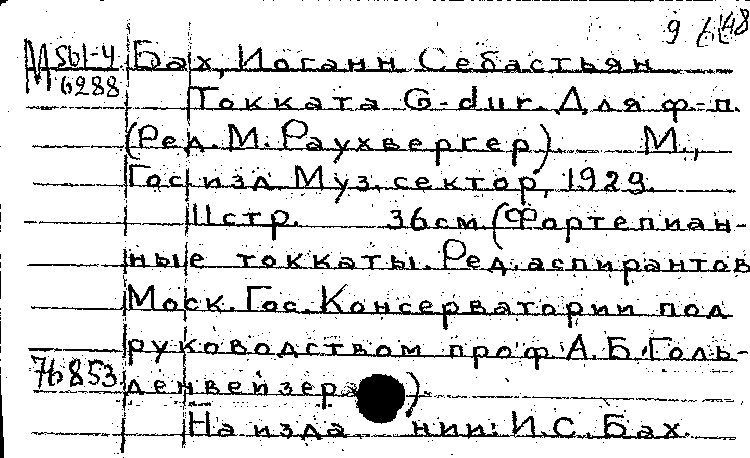 М 561-4
6288
Бах, Иоганн Себастьян
Токката G-dur. Для ф-п.
(Ред. М. Раухвергер). М.,
Госиздл Муз. сектор, 1929.
11 стр. 36 см. (Фортепиан-
ные токкаты. Ред. аспирантов
Моск. Гос. Консерватории под
руководством проф А. Б. Голь-
76853
денвейзера).
На изда нии: И. С. Бах.